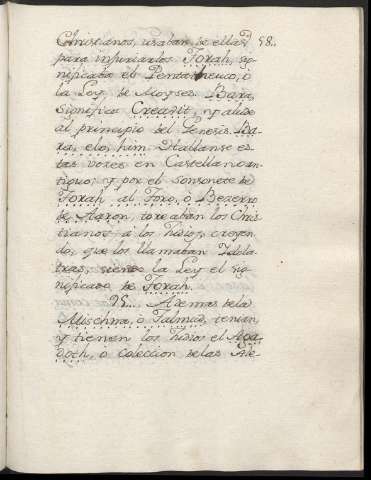 Christianos, usaban de ellas 58.
para injuriarlos Torah, sig-
nificaba el Pentatheuco, ò
la Ley de Moyses. Bara,
significa Creavit, y alude
al principio del Genesis. Ba-
ra, elo, him. Hallanse es-
tas voces en Castellano an-
tiguo; y por el sonsonete de
Torah al Toro, ò Becerro
de Aaron, toreaban los Chris-
tianos à los Judios, creyen-
do, que los llamaban Idola-
tras, siendo la Ley el sig-
nificado de Torah.
95... Ademas de la
Mischna, ò Talmud, tenian,
y tienen los Judios el Aga-
doth, ò coleccion de las Ale-